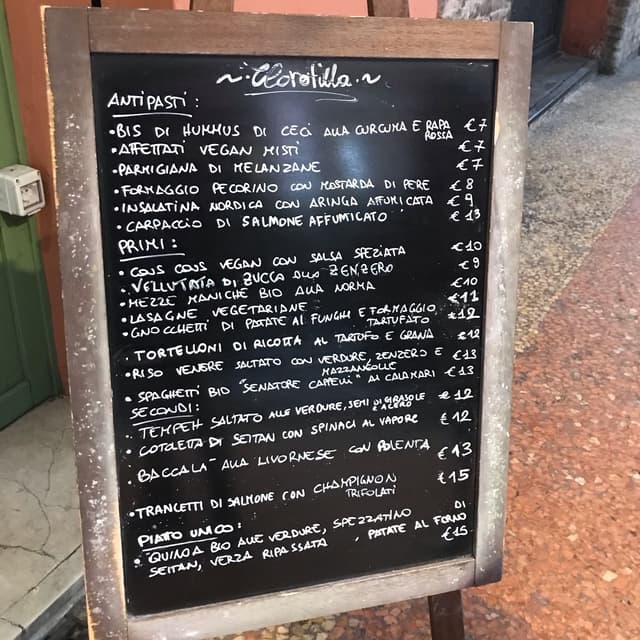 ~ Clorofilla ~
ANTIPASTI:
• BIS DI HUMMUS DI CECI ALLA CURCUMA E RAPA ROSSA €7
• AFFETTATI VEGAN MISTI €7
• PARMIGIANA DI MELANZANE €7
• FORMAGGIO PECORINO CON MOSTARDA DI PERE €8
• INSALATINA NORDICA CON ARINGA AFFUMICATA €9
• CARPACCIO DI SALMONE AFFUMICATO €13
PRIMI:
• COUS COUS VEGAN CON SALSA SPEZIATA €10
• VELLUTATA DI ZUCCA ALLO ZENZERO €9
• MEZZE MANICHE BIO ALLA NORMA €10
• LASAGNE VEGETARIANE €11
• GNOCCHETTI DI PATATE AI FUNGHI E FORMAGGIO TARTUFATO €12
• TORTELLONI DI RICOTTA AL TARTUFO E GRANA €12
• RISO VENERE SALTATO CON VERDURE, ZENZERO E MAZZANCOLLE €13
• SPAGHETTI BIO "SENATORE CAPPELLI" AI CALAMARI €13
SECONDI:
• TEMPEH SALTATO ALLE VERDURE, SEMI DI GIRASOLE E ACERO €12
• COTOLETTA DI SEITAN CON SPINACI AL VAPORE €12
• BACCALA' ALLA LIVORNESE CON POLENTA €13
• TRANCETTI DI SALMONE CON CHAMPIGNON TRIFOLATI €15
PIATO UNICO:
• QUINOA BIO ALLE VERDURE, SPEZZATINO DI
SEITAN, VERZA RIPASSATA, PATATE AL FORNO €15